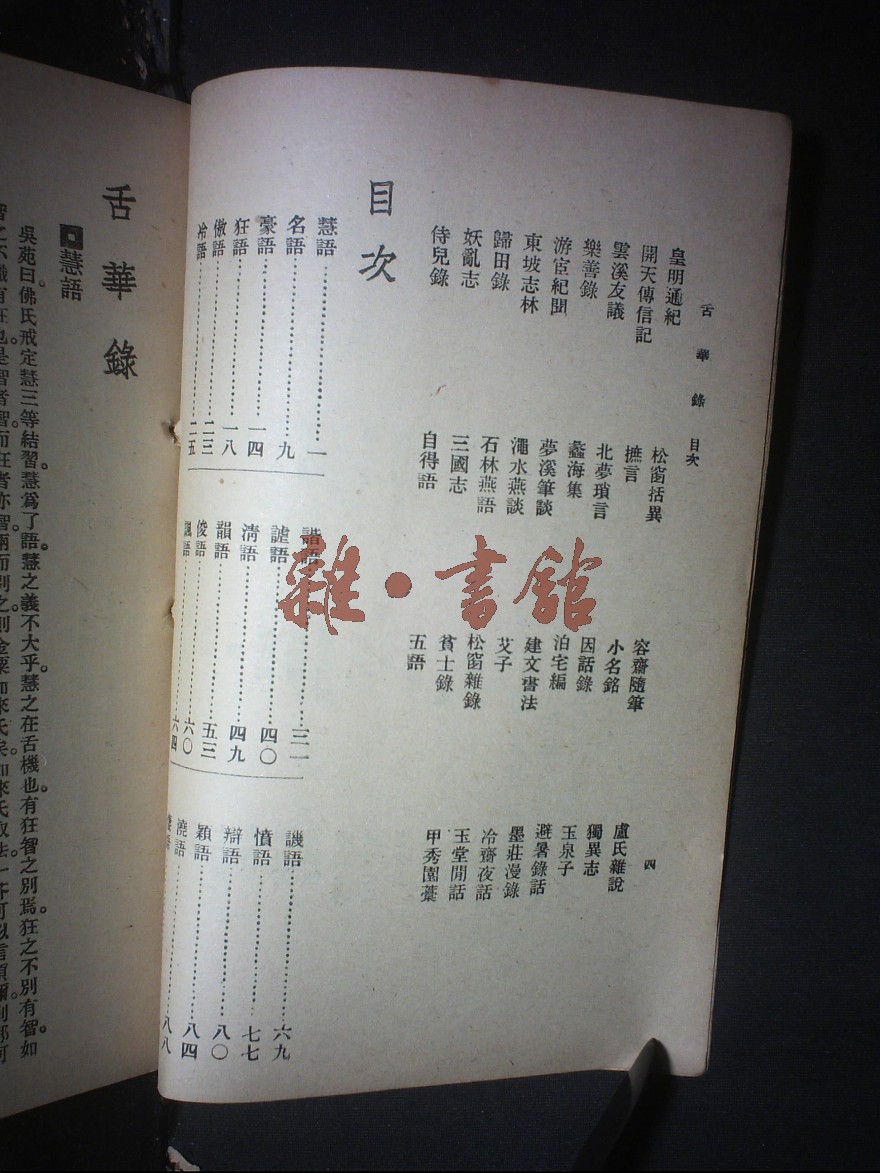 舌華錄 目次
四
皇明通紀
開天傳信記
雲溪友議
樂善錄
游宦紀聞
東坡志林
歸田錄
妖亂志
侍兒錄
松窗括異
摭言
北夢瑣言
蠡海集
夢溪筆談
澠水燕談
石林燕語
三國志
自得語
容齋隨筆
小名銘
因話錄
泊宅編
建文書法
艾子
松窗雜錄
貧士錄
五語
盧氏雜說
獨異志
玉泉子
避暑錄話
墨莊漫錄
冷齋夜話
玉堂閒話
甲秀園藁
目次
慧語 一
名語 九
豪語 一四
狂語 一八
傲語 二三
冷語 二五
諧語 三一
謔語 四〇
清語 四九
韻語 五三
俊語 六〇
諷語 六四
譏語 六九
憤語 七七
辯語 八〇
穎語 八四
澆語 八八
雜·書館
舌華錄
慧語
吳苑曰。佛氏戒定慧三等結習。慧爲了語。慧之義不大乎。慧之在舌機也。有狂智之別焉。狂之不別有智。如